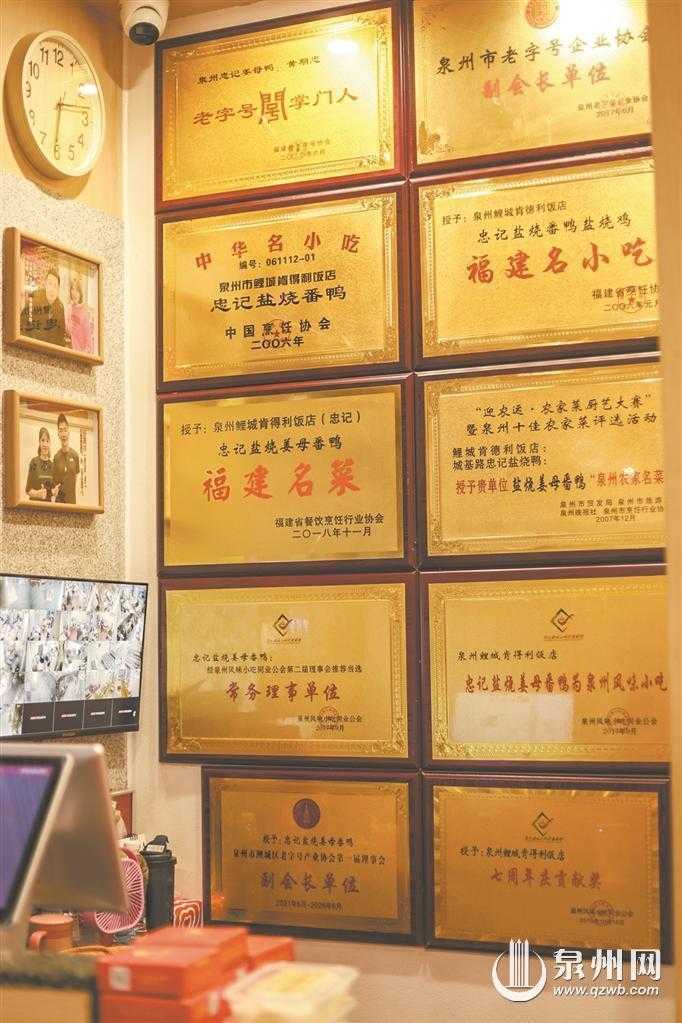 泉州忠记姜母鸭 黄朝忠
老字号掌门人
泉州市老字号企业协会
副会长单位
泉州老字号企业协会
2017年6月
中华名小吃
编号：061112-01
泉州市鲤城肯得利饭店
忠记盐烧番鸭
中国烹饪协会
二〇〇六年
授予：泉州鲤城肯德利饭店
忠记盐烧番鸭盐烧鸡
福建名小吃
福建省餐饮烹饪协
二〇〇六年元月
授予：泉州鲤城肯得利饭店（忠记）
忠记盐烧姜母番鸭
福建名菜
福建省餐饮烹饪行业协会
二〇一八年十一月
“迎农运·农家菜厨艺大赛”
暨泉州十佳农家菜评选活动
鲤城肯德利饭店：
城基路忠记盐烧鸭：
授予贵单位 盐烧姜母番鸭 “泉州农家名菜
泉州市贸发局 泉州市旅游
泉州晚报社 泉州市烹饪行业协
2007年12月
忠记盐烧姜母番鸭：
经泉州风味小吃同业公会第二届理事会推荐当选
常务理事单位
泉州风味小吃同业公会
泉州鲤城肯得利饭店
忠记盐烧姜母番鸭为泉州风味小吃
泉州风味小吃同业公会
授予：忠记盐烧姜母番鸭
泉州市鲤城区老字号产业协会第一届理事会
副会长单位
2021年6月-2026年6月
授予：泉州鲤城肯得利饭店
七周年庆贡献奖
泉州风味小吃同业公会
泉州网
www.qzwb.com